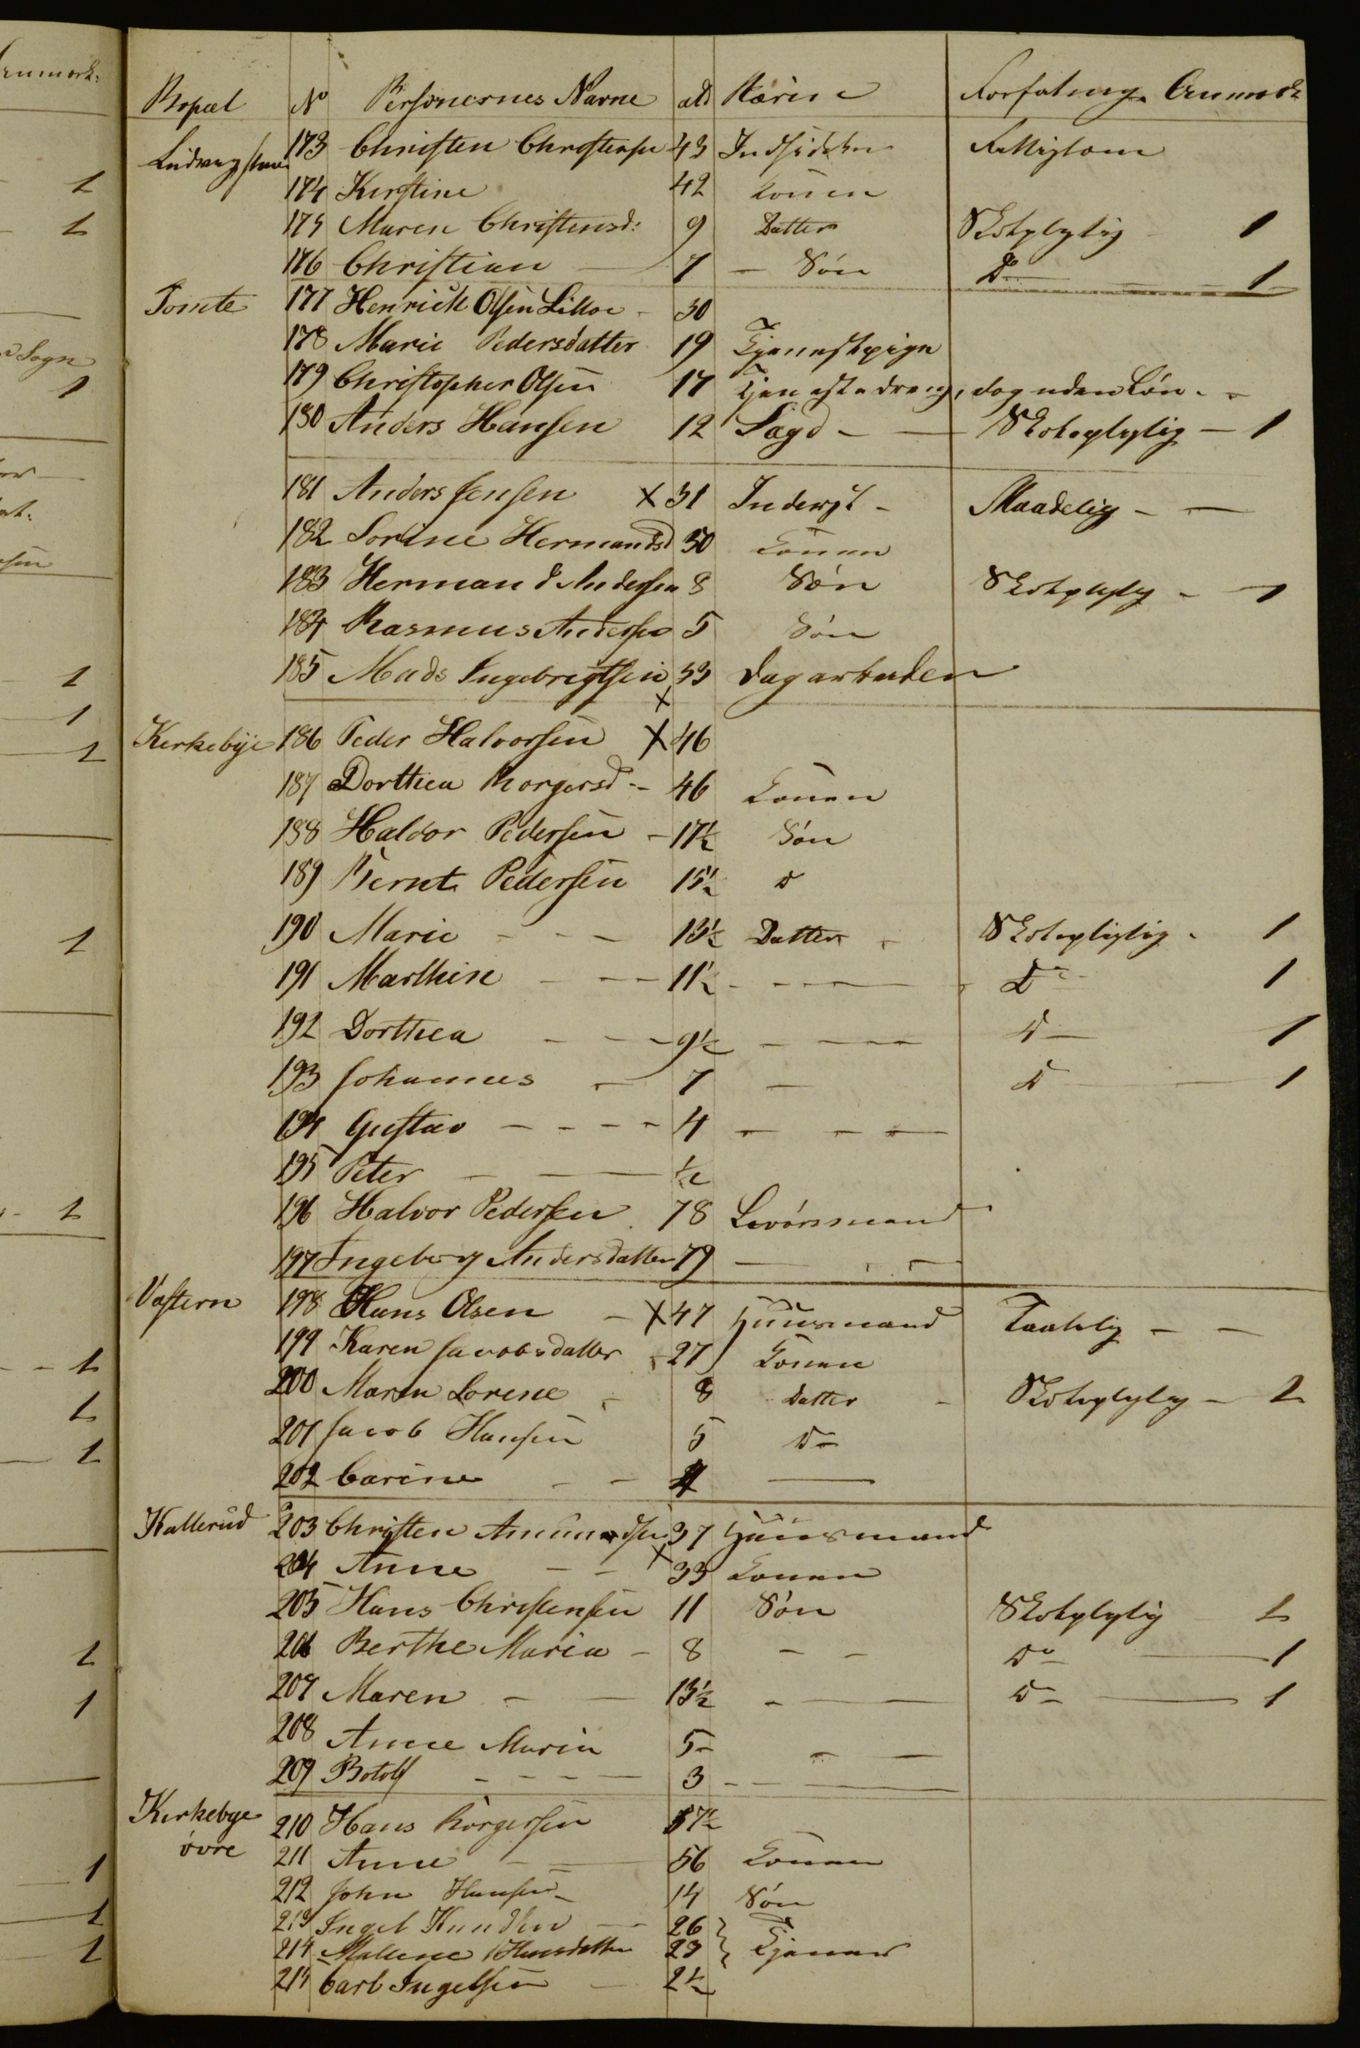 Bopæl No Personernes Navne ald Næring Forfatning Anmærk
173 Christen Christensen 43 Indsidder Fattiglem
174 Kirstine 42 Konen
175 Maren Christensd: 9 Datter Skolepligtig 1
176 Christian — 7 — Søn Do — 1
Tomte 177 Henrich Olsen 30
178 Marie Pedersdatter 19 Tjenestepige
179 Christopher Olsen 17 Tjenestedreng, dog uden Løn
180 Anders Hansen 12 Lægd — Skolepligtig — 1
181 Anders Jensen X 31 Inderst — Maadelig —
182 Sorine Hermandsd 30 Konen
183 Hermand Andersen 8 Søn Skolepligtig — 1
184 Rasmus Andersen 5 Søn
185 Mads Ingebrigtsen 33 Dagarbeider
X
Kirkebye 186 Peder Halvorsen X 46
187 Dorthea Borgersd — 46 Konen
188 Haldor Pedersen — 17½ Søn
189 Bernt Pedersen 15½ D
190 Marie — — — 13½ Datter Skolepligtig 1
191 Marthine — — 11½ — — — Do 1
192 Dorthea — — 9½ — — — D — 1
193 Johannes — 7 — D — 1
194 Gustav — — — — 4 — — —
195 Peter — — ½
196 Halvor Pedersen 78 Livørsmand
197 Ingeborg Andersdatter 79 —
198 Hans Olsen — X 47 Huusmand Taalelig — —
199 Karen Jacobsdatter 27 Konen
200 Maren Lorene 8 Datter Skolepligtig — 1
201 Jacob Hansen 5 Do
202 Carine — — 4 —
Kallerud 203 Christen Amundsen 37 Huusmand
204 Anne — — X 33 Konen
205 Hans Christensen 11 Søn Skolepligtig 1
206 Berthe Maria — 8 — — Do — 1
207 Maren — — 13½ — — Do — 1
208 Anne Maria 5 — — —
209 Botolf — — — — 3 — — —
Kirkebye 210 Hans Borgersen 57½
øvre 211 Anne — — 56 Konen
212 John Hansen — 14 Søn
213 Ingel Knudsen — 26
214 Mallene Hansdatter 23 Tjener
215 Carl Ingelsen — 2½